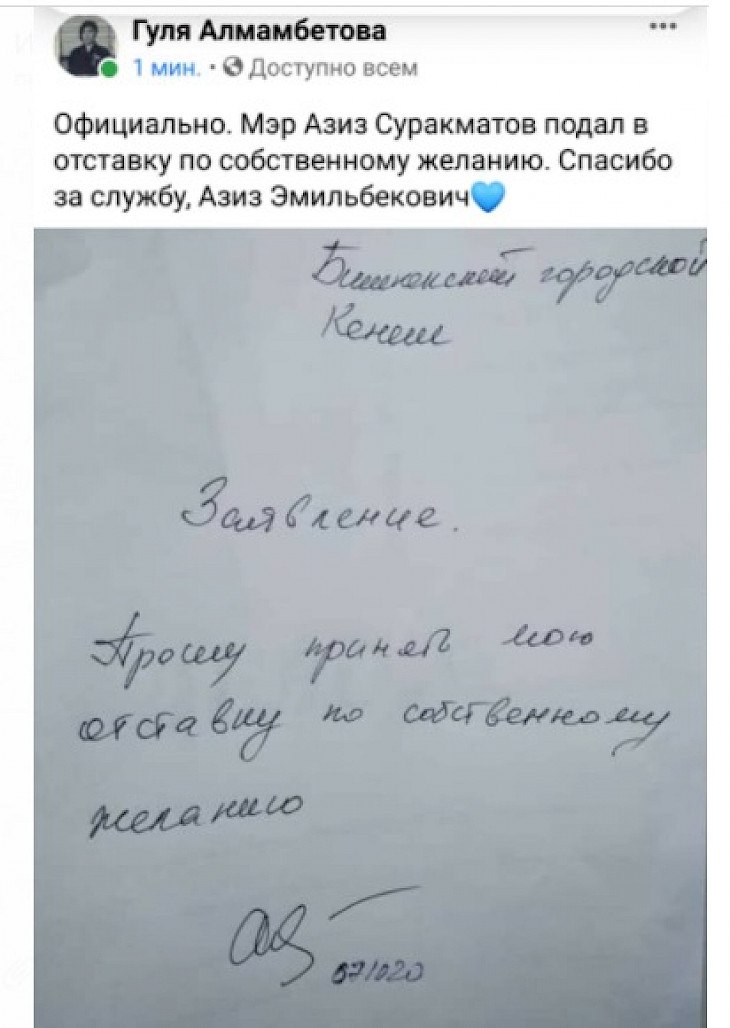 Гуля Алмамбетова
1 мин. · Доступно всем
Официально. Мэр Азиз Суракматов подал в
отставку по собственному желанию. Спасибо
за службу, Азиз Эмильбекович💙
Бишкекский городской
Кенеш
Заявление.
Прошу принять мою
отставку по собственному
желанию
071020